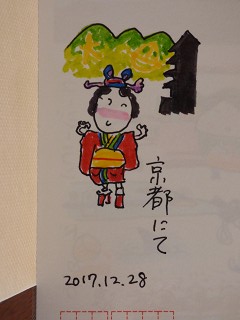 京都にて
2017.12.28